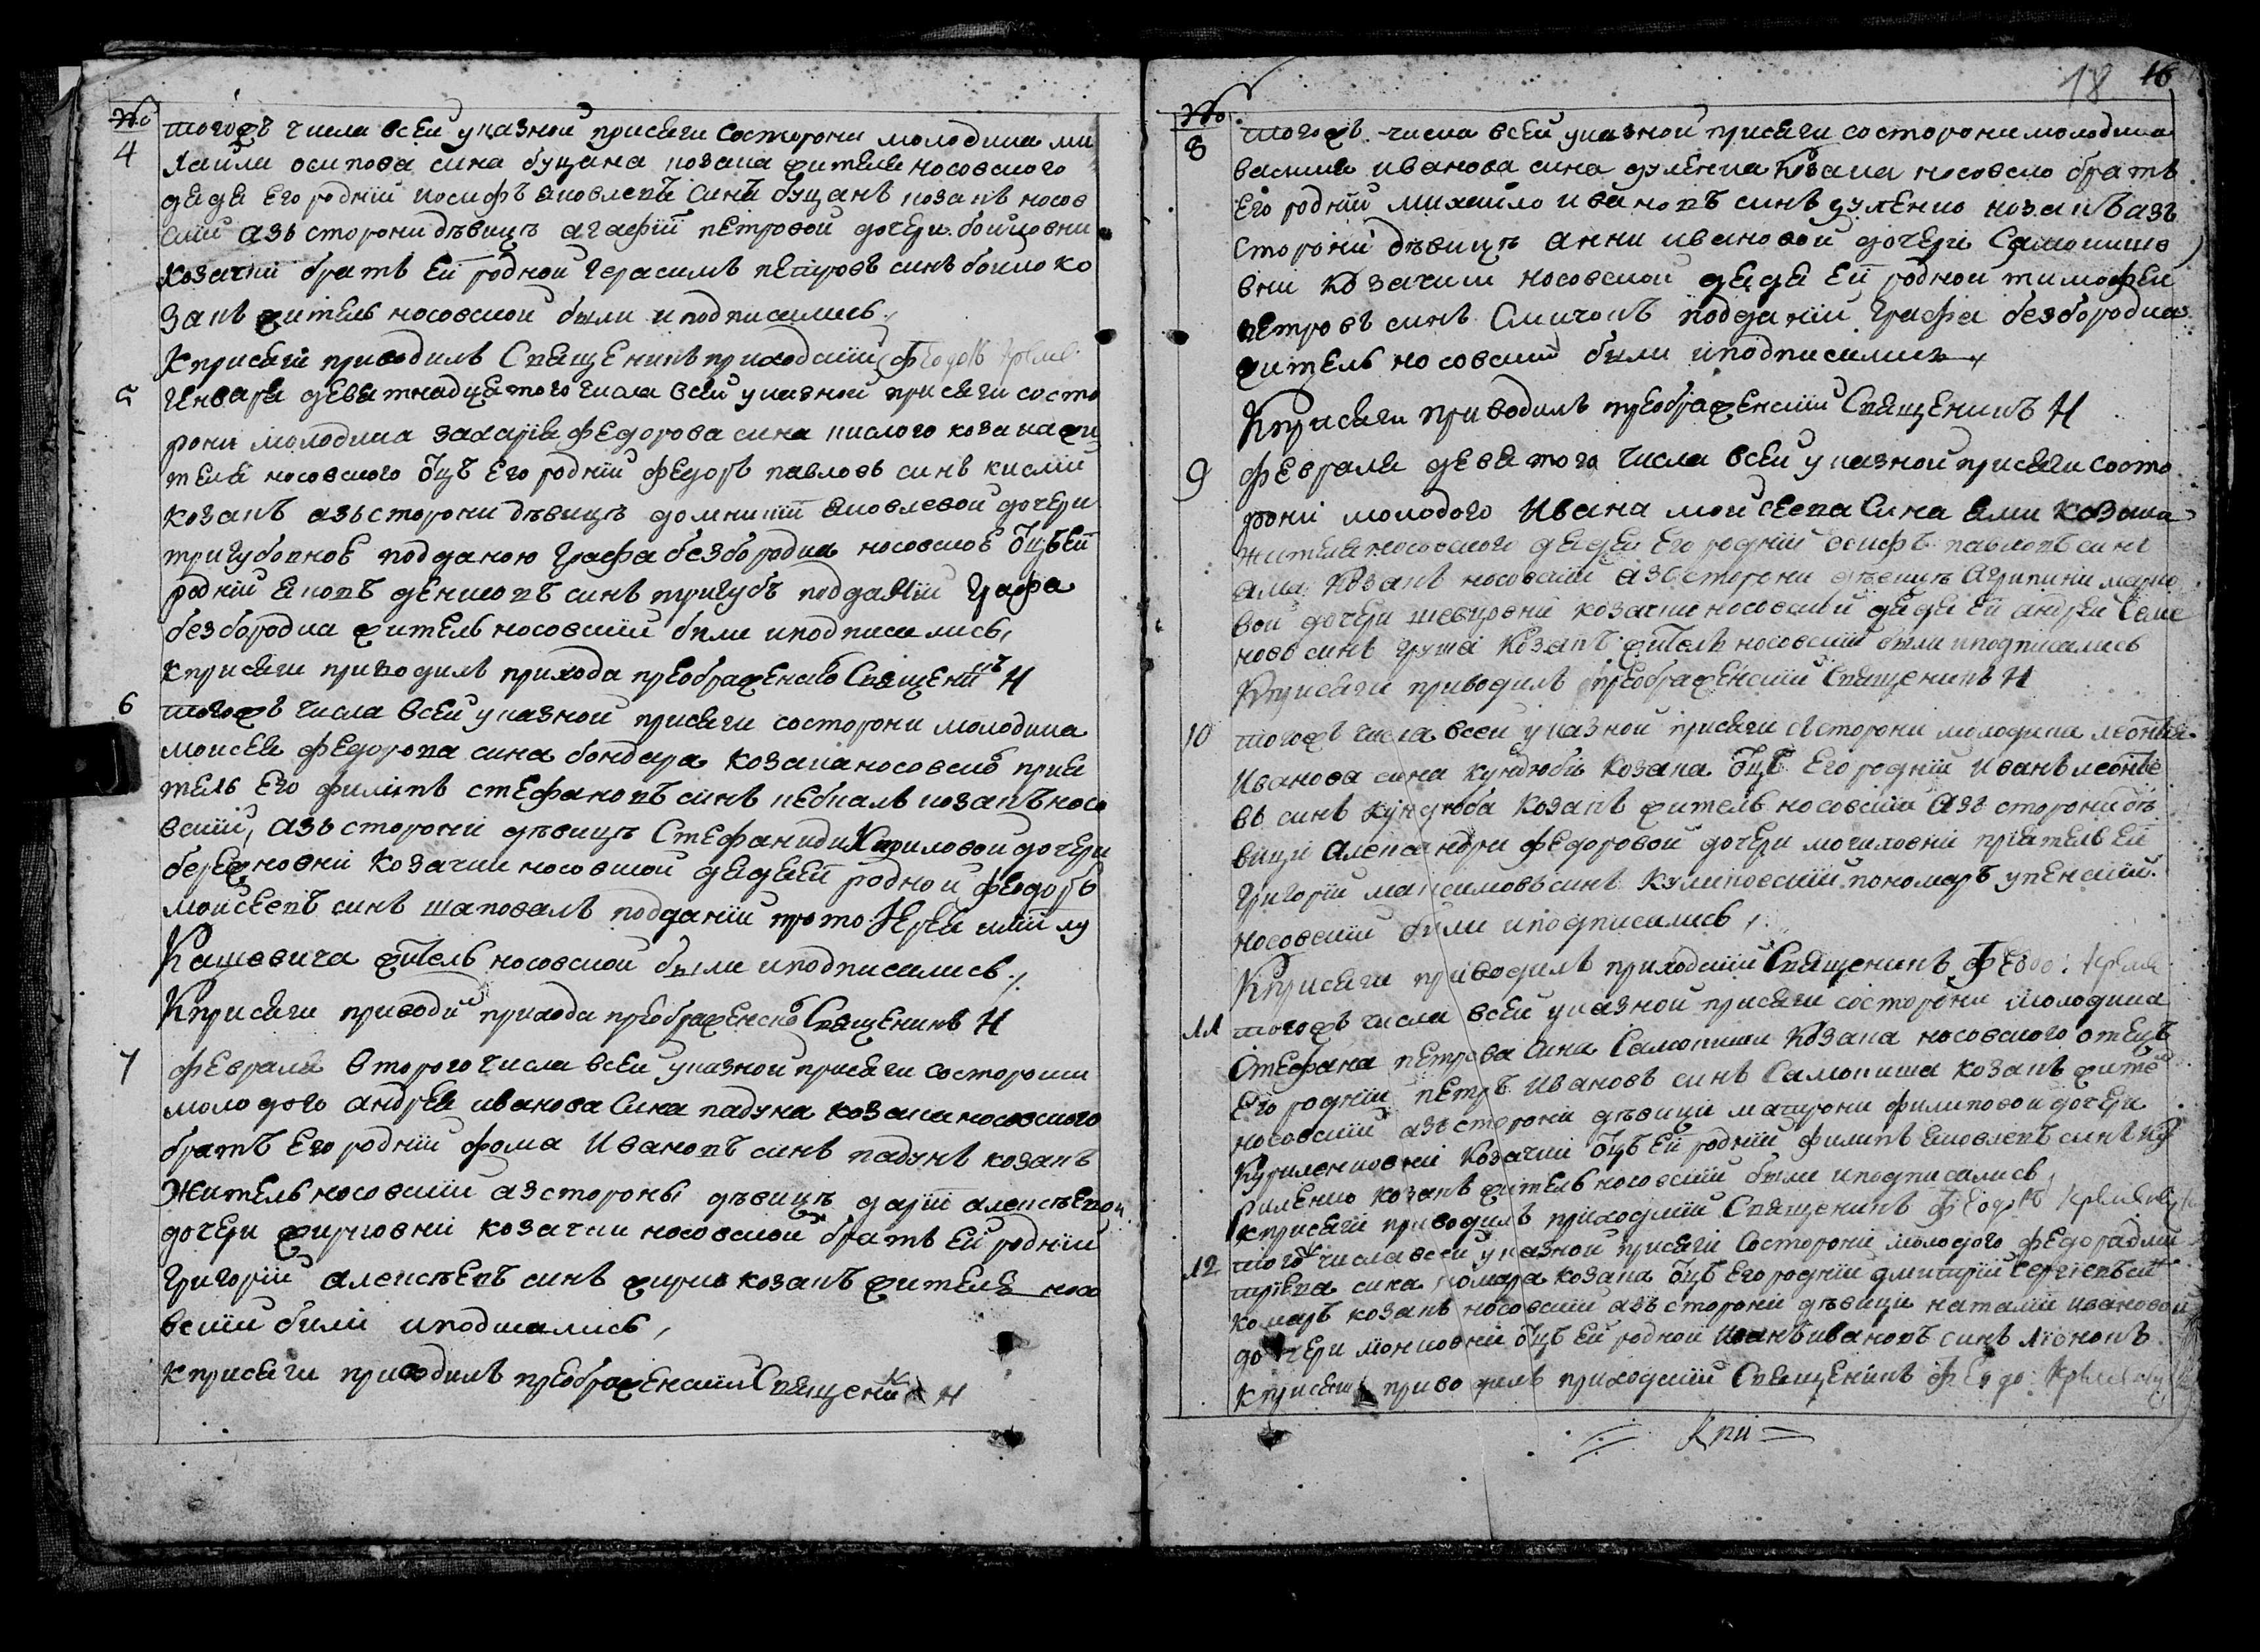 №
4
тогожъ числа всей указной присяги состорони молодика ми
хайли осипова сина буцана козака жителя носовского
дядя его роднїй иосифъ яковлевъ синъ буцанъ козакъ носов
скїй азъ сторони дѣвицъ агафїй петровой дочери бойцовни
козачки братъ ей родной герасимъ петровъ синъ бойко ко
закъ житель носовской были и подписались
К присяги приводилъ Священикъ приходский Феодоръ
5
Генваря девятнадцятого числа всей указной присяги состо
рони молодика захарїя федорова сина кислого козака жи
теля носовского оцъ его роднїй федоръ павловъ синъ кислїй
козакъ азъ сторони дѣвицъ домникїй яковлевой дочери
тригубовнє подданою графа безбородка носовскоє оцъ ей
роднїй яковъ денисовъ синъ тригубъ подданїй графа
безбородка житель носовскїй били и подписались
к присяги приводилъ прихода преображенско Священикъ Н
6
тогожъ числа всей указной присяги состорони молодика
моисея федорова сина бондаря козака носовско прия
тель его филипъ стефановъ синъ небкалъ козакъ носо
вскїй, азъ сторони дѣвицъ Стефаниди Кириловой дочери
бережновнї козачки носовской дядя ей родной феодоръ
мойсеевъ синъ шаповалъ подданїй прото Иерея илїй лу
Кашевича житель носовской были и подписались
К присяги приводи прихода преображенско Священикъ Н
7
февраля второго числа всей указной присяги состорони
молодого андрея иванова Сина падуна козака носовского
братъ его роднїй фома Ивановъ синъ падунъ козакъ
Житель носовскїй аз стороны дѣвицъ дарїй алексѣевой
дочери жирковнї козачки носовской братъ ей роднїй
григорїй алексѣевъ синъ жирко козакъ житель носо
вскїй билї и подписались,
к присяги приводилъ преображенскїй Священикъ Н
18 16
№
8
тогожъ числа всей указной присяги состорони молодика
василя иванова сина дуленка козака носовско братъ
его роднїй михайло ивановъ синъ дуленко козакъ азъ
сторонї дѣвицъ анни ивановой дочерї Самокишо
внї козачки носовской дядя ей родной тимофей
петровъ синъ Сличокъ подданїй графа безбородка
житель носовский были и подписались
К присяги приводилъ преображенскїй Священикъ Н
9
февраля девятого числа всей указной присяги состо
ронї молодого Ивана мойсеева Сина ями козака
жителя носовского дядя его роднїй осифъ павловъ синъ
яма козакъ носовскїй азъ сторони дѣвицъ Агрипинї марко
вой дочери шевцовнї козачки носовской дядя ей андрей Семе
новъ синъ груша козакъ житель носовский были и подписались
К присяги приводилъ преображенскїй Священикъ Н
10
тогожъ числа всей указной присяги състорони молодика леонтїя
Иванова сина кундюби козака оцъ его роднїй Иванъ леонтїе
въ синъ кундюба козакъ житель носовскїй азъ сторонї дѣ
вицї александри федоровой дочери могиловнї приятель ей
григорїй максимовъ синъ куликовский пономаръ успенский
носовский были и подписались
К присяги приводилъ приходскїй Священикъ Феодо:
11
тогожъ числа всей указной присяги состорони молодика
Стефана петрова сина Самокиши козака носовского отецъ
его роднїй петръ Ивановъ синъ Самокиша козакъ жите
носовскїй азъ сторонї дѣвици матрони филиповой дочери
куриленковнї козачки оцъ ей роднїй филипъ яковлевъ синъ ку
риленко козакъ житель носовскїй были и подписались
к присяги приводилъ приходский Священикъ Феодоръ
12
того числа всей указной присягї Состоронї молодого федора дми
трїева сина комара козака оцъ его роднїй дмитрїй Сергїевъ си
комаръ козакъ носовскїй азъ сторонї дѣвици наталїй ивановой
дочери люнковнї оцъ ей родной Иванъ ивановъ синъ люнокъ
к присяги приводилъ приходскїй Священїкъ Феодо:
К при